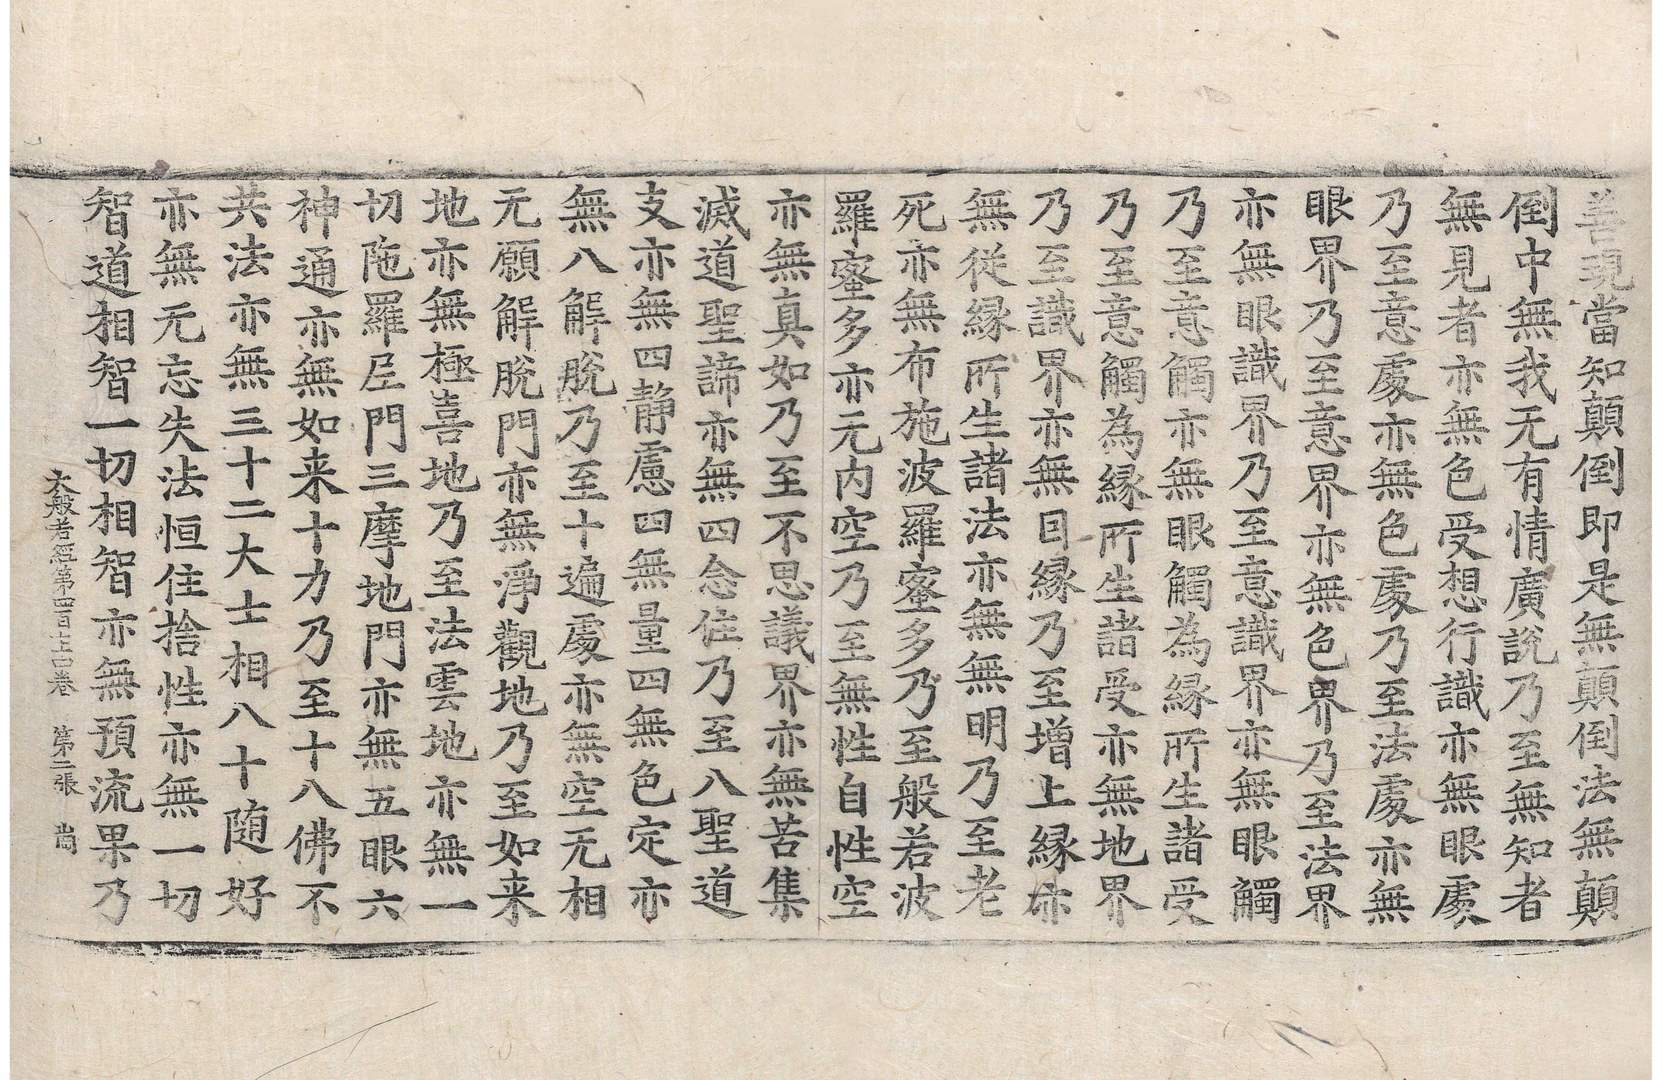 善現當知顛倒即是無顛倒法無顛
倒中無我无有情廣說乃至無知者
無見者亦無色受想行識亦無眼處
乃至意處亦無色處乃至法處亦無
眼界乃至意界亦無色界乃至法界
亦無眼識界乃至意識界亦無眼觸
乃至意觸亦無眼觸為緣所生諸受
乃至意觸為緣所生諸受亦無地界
乃至識界亦無因緣乃至增上緣亦
無從緣所生諸法亦無無明乃至老
死亦無布施波羅蜜多乃至般若波
羅蜜多亦无內空乃至無性自性空
亦無真如乃至不思議界亦無苦集
滅道聖諦亦無四念住乃至八聖道
支亦無四静慮四無量四無色定亦
無八解脫乃至十遍處亦無空无相
无願解脫門亦無淨觀地乃至如来
地亦無極喜地乃至法雲地亦無一
切陁羅尼門三摩地門亦無五眼六
神通亦無如来十力乃至十八佛不
共法亦無三十二大士相八十随好
亦無无忘失法恒住捨性亦無一切
智道相智一切相智亦無預流果乃
大般若經第四百卄四卷 第二張 崗